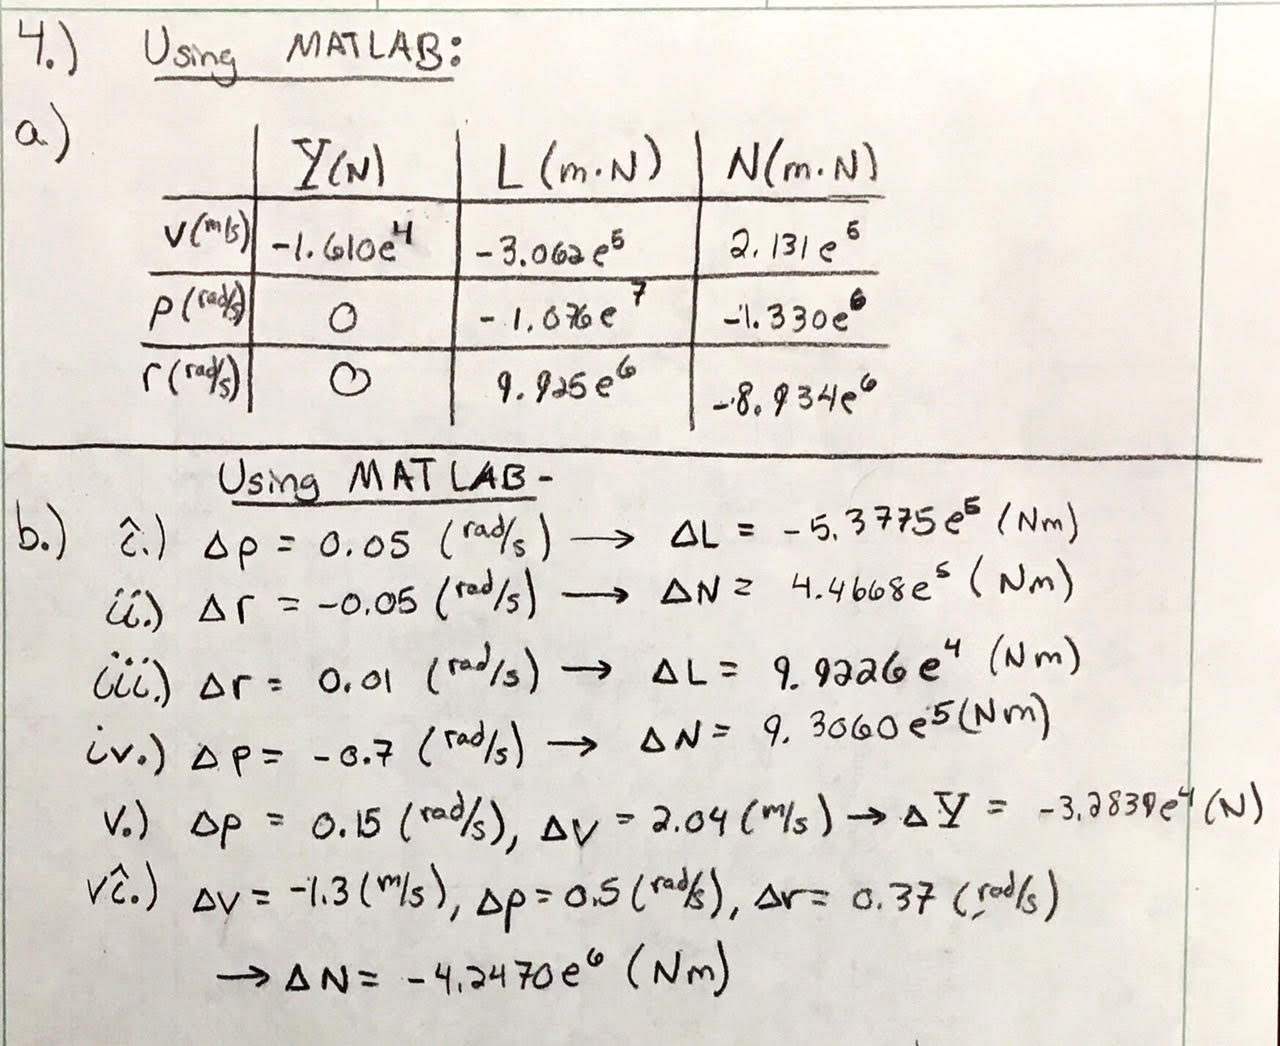 4.) Using MATLAB:
a)
Y(N) L (m·N) N(m·N)
v(m/s) -1.610e⁴ -3.062e⁵ 2.131e⁵
p(rad/s) 0 -1.076e⁷ -1.330e⁶
r(rad/s) 0 9.925e⁶ -8.934e⁶
Using MATLAB -
b.) i.) Δp = 0.05 (rad/s) → ΔL = -5.3775e⁵ (Nm)
ii.) Δr = -0.05 (rad/s) → ΔN = 4.4668e⁵ (Nm)
iii.) Δr = 0.01 (rad/s) → ΔL = 9.9226e⁴ (Nm)
iv.) Δp = -0.7 (rad/s) → ΔN = 9.3060e⁵(Nm)
v.) Δp = 0.15 (rad/s), Δv = 2.04 (m/s) → ΔY = -3.2839e⁴ (N)
vi.) Δv = -1.3 (m/s), Δp = 0.5 (rad/s), Δr = 0.37 (rad/s)
→ ΔN = -4.2470e⁶ (Nm)